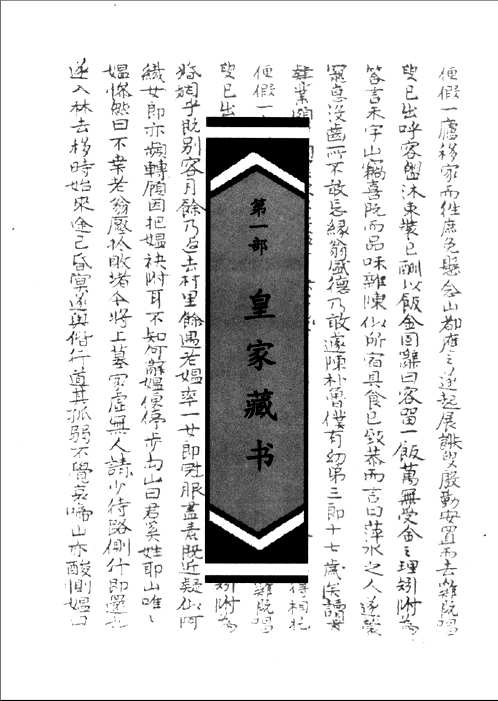 便假一廬移家而往庶免懸念山都應之遂起展謝叟殷勤安置而去雞既唱
叟已出呼客盥沐束裝已酬以飯金固辭曰客留一飯萬無受金之理矧附為
答言未字山竊喜既而品味雜陳似所宿具食已致恭而言曰萍水之人遂蒙
寵惠沒齒所不敢忘緣翁盛德乃敢遽陳朴魯僕有幼弟三郎十七歲矣讀書
肄業頗 得相托
便假一 雞既唱
叟已出 矧附為
第一部
皇家藏书
婚姻乎既別客月餘乃返去村里餘遇老媪率一女郎冠服盡素既近疑似阿
纖女郎亦頻轉顧因把媪袂附耳不知何辭媪便停步向山曰君奚姓耶山唯唯
媪慘然曰不幸老翁壓於敗堵今將上墓家虛無人請少待路側什即還也
遂入林去移時始來途已昏冥遂與偕行道其孤弱不覺哀啼山亦酸惻媪曰